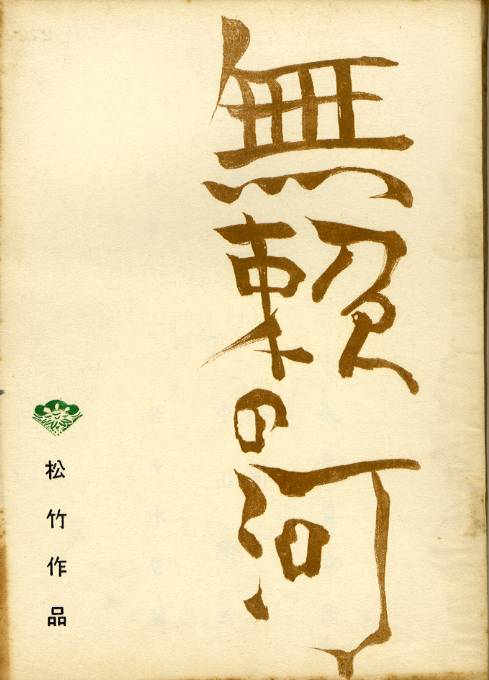 無頼の河
松竹作品